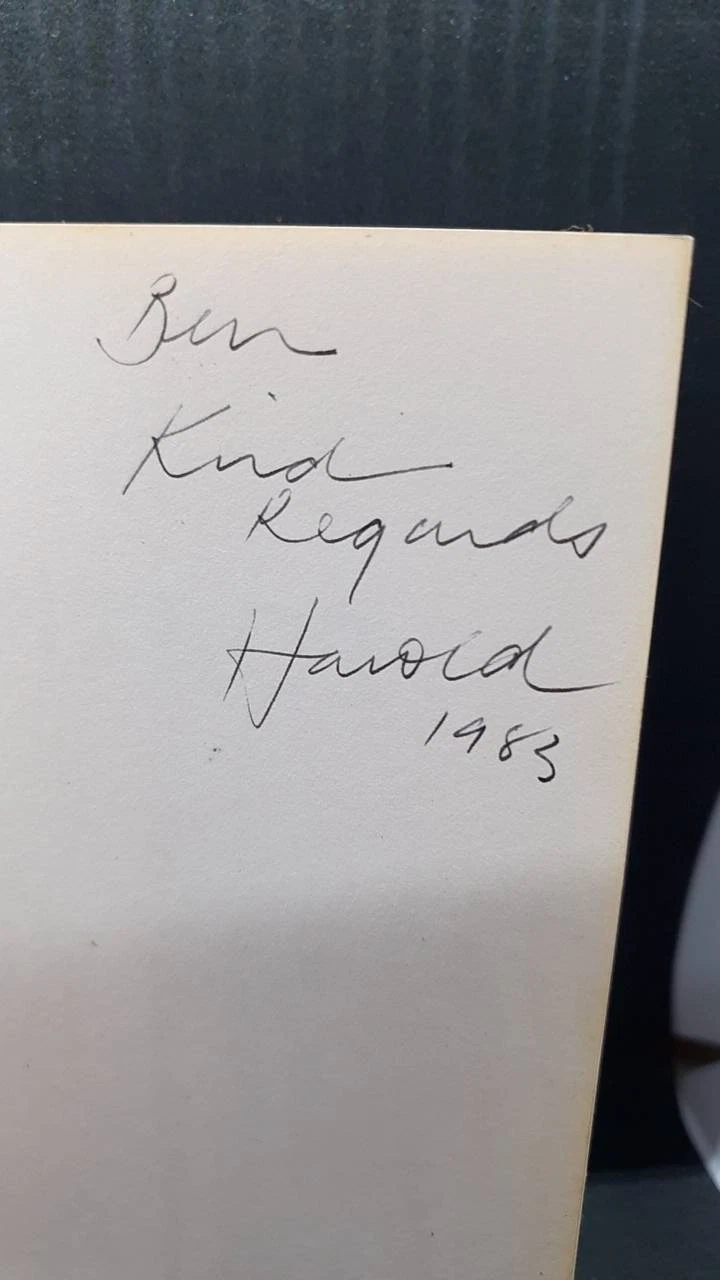 Ben
Kind
Regards
Harold
1983